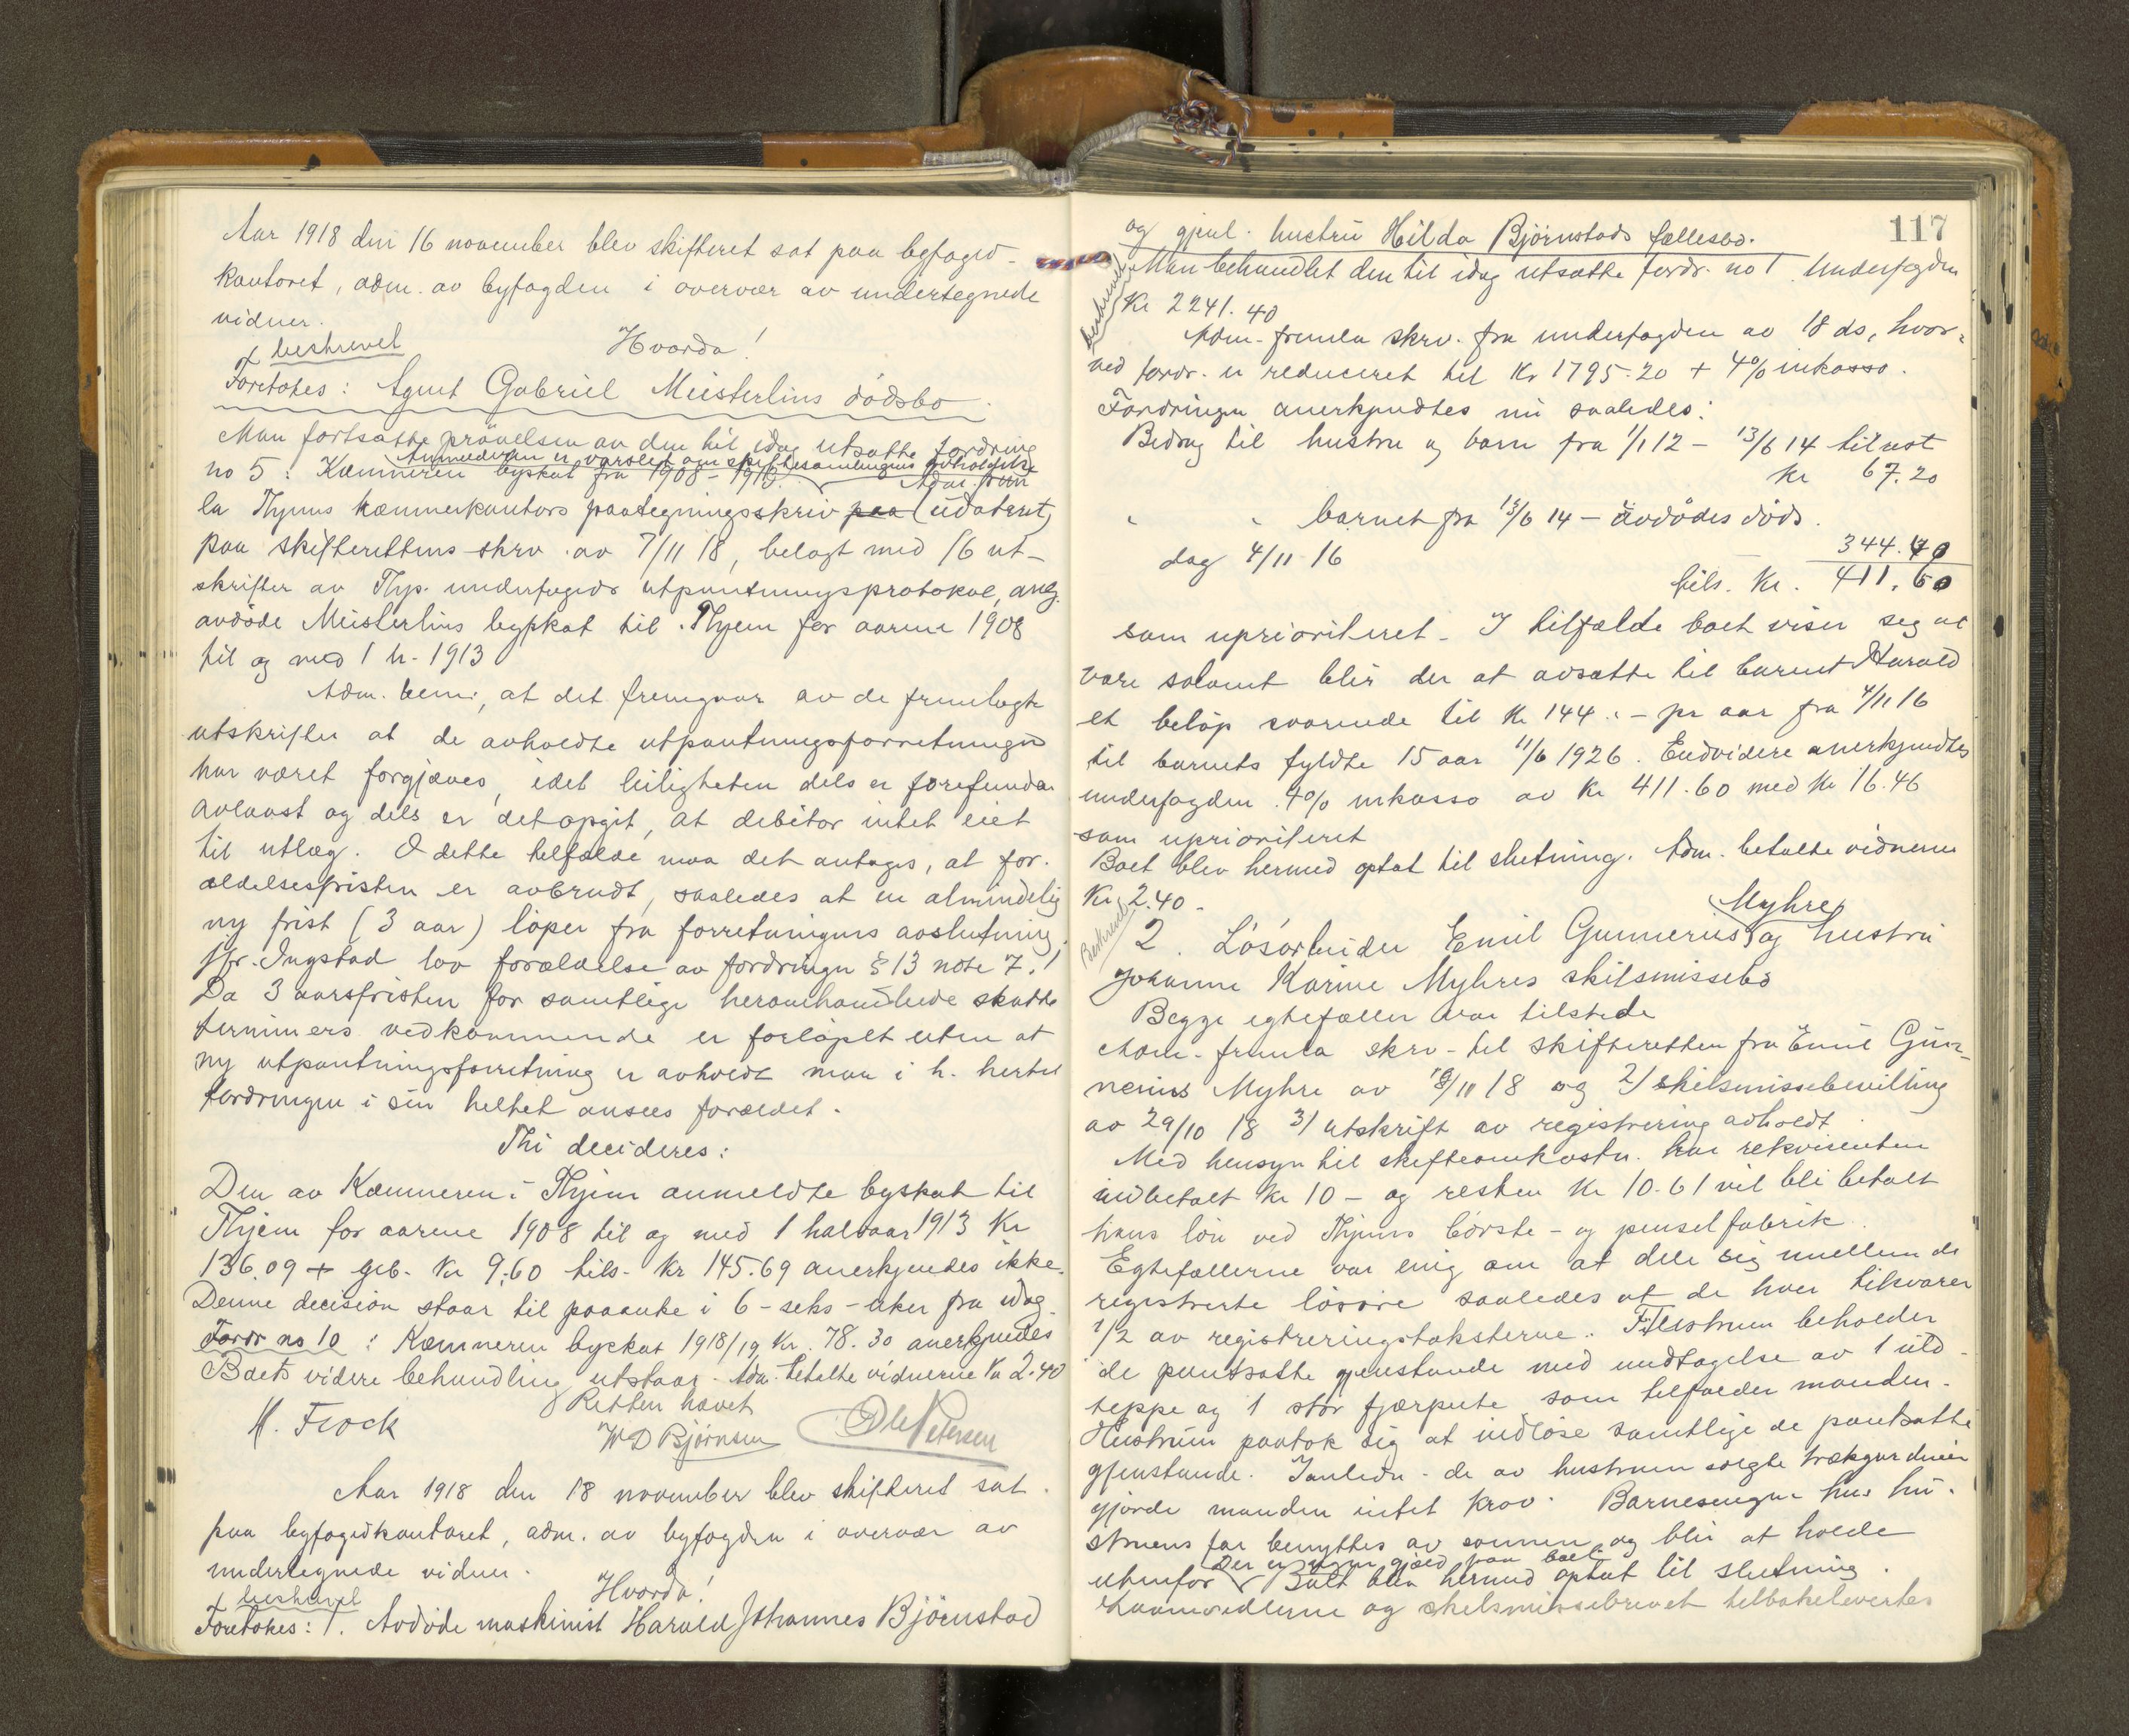 Aar 1918 den 16 november blev skifteret sat paa byfoged-
kontoret, adm. av byfogden i overvær av undertegnede
vidner.
beskrevet
Hvorda!
Foretokes: Agent Gabriel Meisterlins dödsbo.
Man fortsatte prövelsen av den til idag utsatte fordring
Anmelderen er varslet om skiftesamlingens avholdelse
no 5: Kæmneren byskat fra 1908-1913. Adm. frem
la Thjems kæmnerkontors paategningsskriv paa (udatert)
paa skifterettens skrv. av 7/11 18, belagt med 16 ut-
skrifter av Thj. underfogeds utpantningsprotokol, ang.
avdöde Meisterlins byskat til Thjem for aarene 1908
til og med 1 h. 1913
Adm. bem., at det fremgaar av de fremlagte
utskrifter at de avholdte utpantningsforretninger
har været forgjæves, idet leiligheten dels er forefundet
avlaast og dels er det opgit, at debitor intet eiet
til utlæg. I dette tilfælde maa det antages, at for-
ældelsesfristen er avbrudt, saaledes at en almindelig
ny frist (3 aar) löper fra forretningens avslutning,
jfr. Ingstad lov forældelse av fordringer § 13 note 7.!
Da 3 aarsfristen for samtlige heromhandlede skatte
terminers vedkommende er forlöpet uten at
ny utpantningsforretning er avholdt maa i h. hertil
fordringen i sin helhet ansees forældet.
Thi decideres:
Den av Kæmneren i Thjem anmeldte byskat til
Thjem for aarene 1908 til og med 1 halvaar 1913 Kr
136.09 + geb. Kr 9.60 tils. Kr 145.69 anerkjendes ikke.
Denne decision staar til paaanke i 6-seks-uker fra idag.
Fordr no 10: Kæmneren byskat 1918/19 Kr. 78.30 anerkjendes
Boets videre behandling utstaar. Adm. betalte vidnerne Kr 2.40
Retten hævet
K. Frock W D Björnsen Ole Petersen
Aar 1918 den 18 november blev skifteret sat
paa byfogedkontoret, adm. av byfogden i overvær av
undertegnede vidner.
Hvorda!
beskrevet
Foretokes: 1. Avdöde maskinist Harald Johannes Björnstad
117
og gjenl. hustru Hilda Björnstads fællesbo.
beskrevet
Man behandlet den til idag utsatte fordr. no 1. Underfogden
Kr 2241.40
Adm. fremla skrv. fra underfogden av 18 ds, hvor-
ved fordr. er reduceret til Kr 1795.20 + 4% inkasso.
Fordringen anerkjendtes nu saaledes:
Bidrag til hustru og barn fra 1/1 12 - 13/6 14 tilrest
Kr 67.20
" " barnet fra 13/6 14 - avdödes döds
dag 4/11 16 344.40
tils. Kr. 411.60
som uprioriteret. I tilfælde boet viser seg at
være solvent blir der at avsætte til barnet Harald
et belöp svarende til Kr 144.- pr aar fra 4/11 16
til barnets fyldte 15 aar 11/6 1926. Endvidere anerkjendtes
underfogden 4% inkasso av Kr 411.60 med Kr 16.46
som uprioriteret
Boet blev hermed optat til slutning. Adm. betalte vidnerne
Kr 2.40.
Beskrevet
Myhre
2. Lösarbeider Emil Gunnerius og hustru
Johanne Karine Myhres skilsmissebo
Begge egtefæller var tilstede
Adm. fremla skrv. til skifteretten fra Emil Gun-
nerius Myhre av 18/11 18 og 2) skilsmissebevilling
av 29/10 18 3) utskrift av registrering avholdt
Med hensyn til skifteomkostn. har rekvirenten
indbetalt Kr 10- og resten Kr 10.61 vil bli betalt
hans lön ved Thjems börste- og penselfabrik.
Egtefællerne var enig om at dele sig imellem de
registrerte lösöre saaledes at de hver tilsvarer
1/2 av registreringstaksterne. Hustruen beholder
de pantsatte gjenstande med undtagelse av 1 uld-
teppe og 1 stor fjærpute som tilfalder manden.
Hustruen paatok sig at indlöse samtlige de pantsatte
gjenstande. Ianledn. de av hustruen solgte trækgardiner
gjorde manden intet krav. Barnesengen hus hu-
struens far benyttes av sönnen og blir at holde
Der er ingen gjæld paa boet.
utenfor Boet blev hermed optat til slutning.
Laanesedlerne og skilsmissebrevet tilbakelevertes